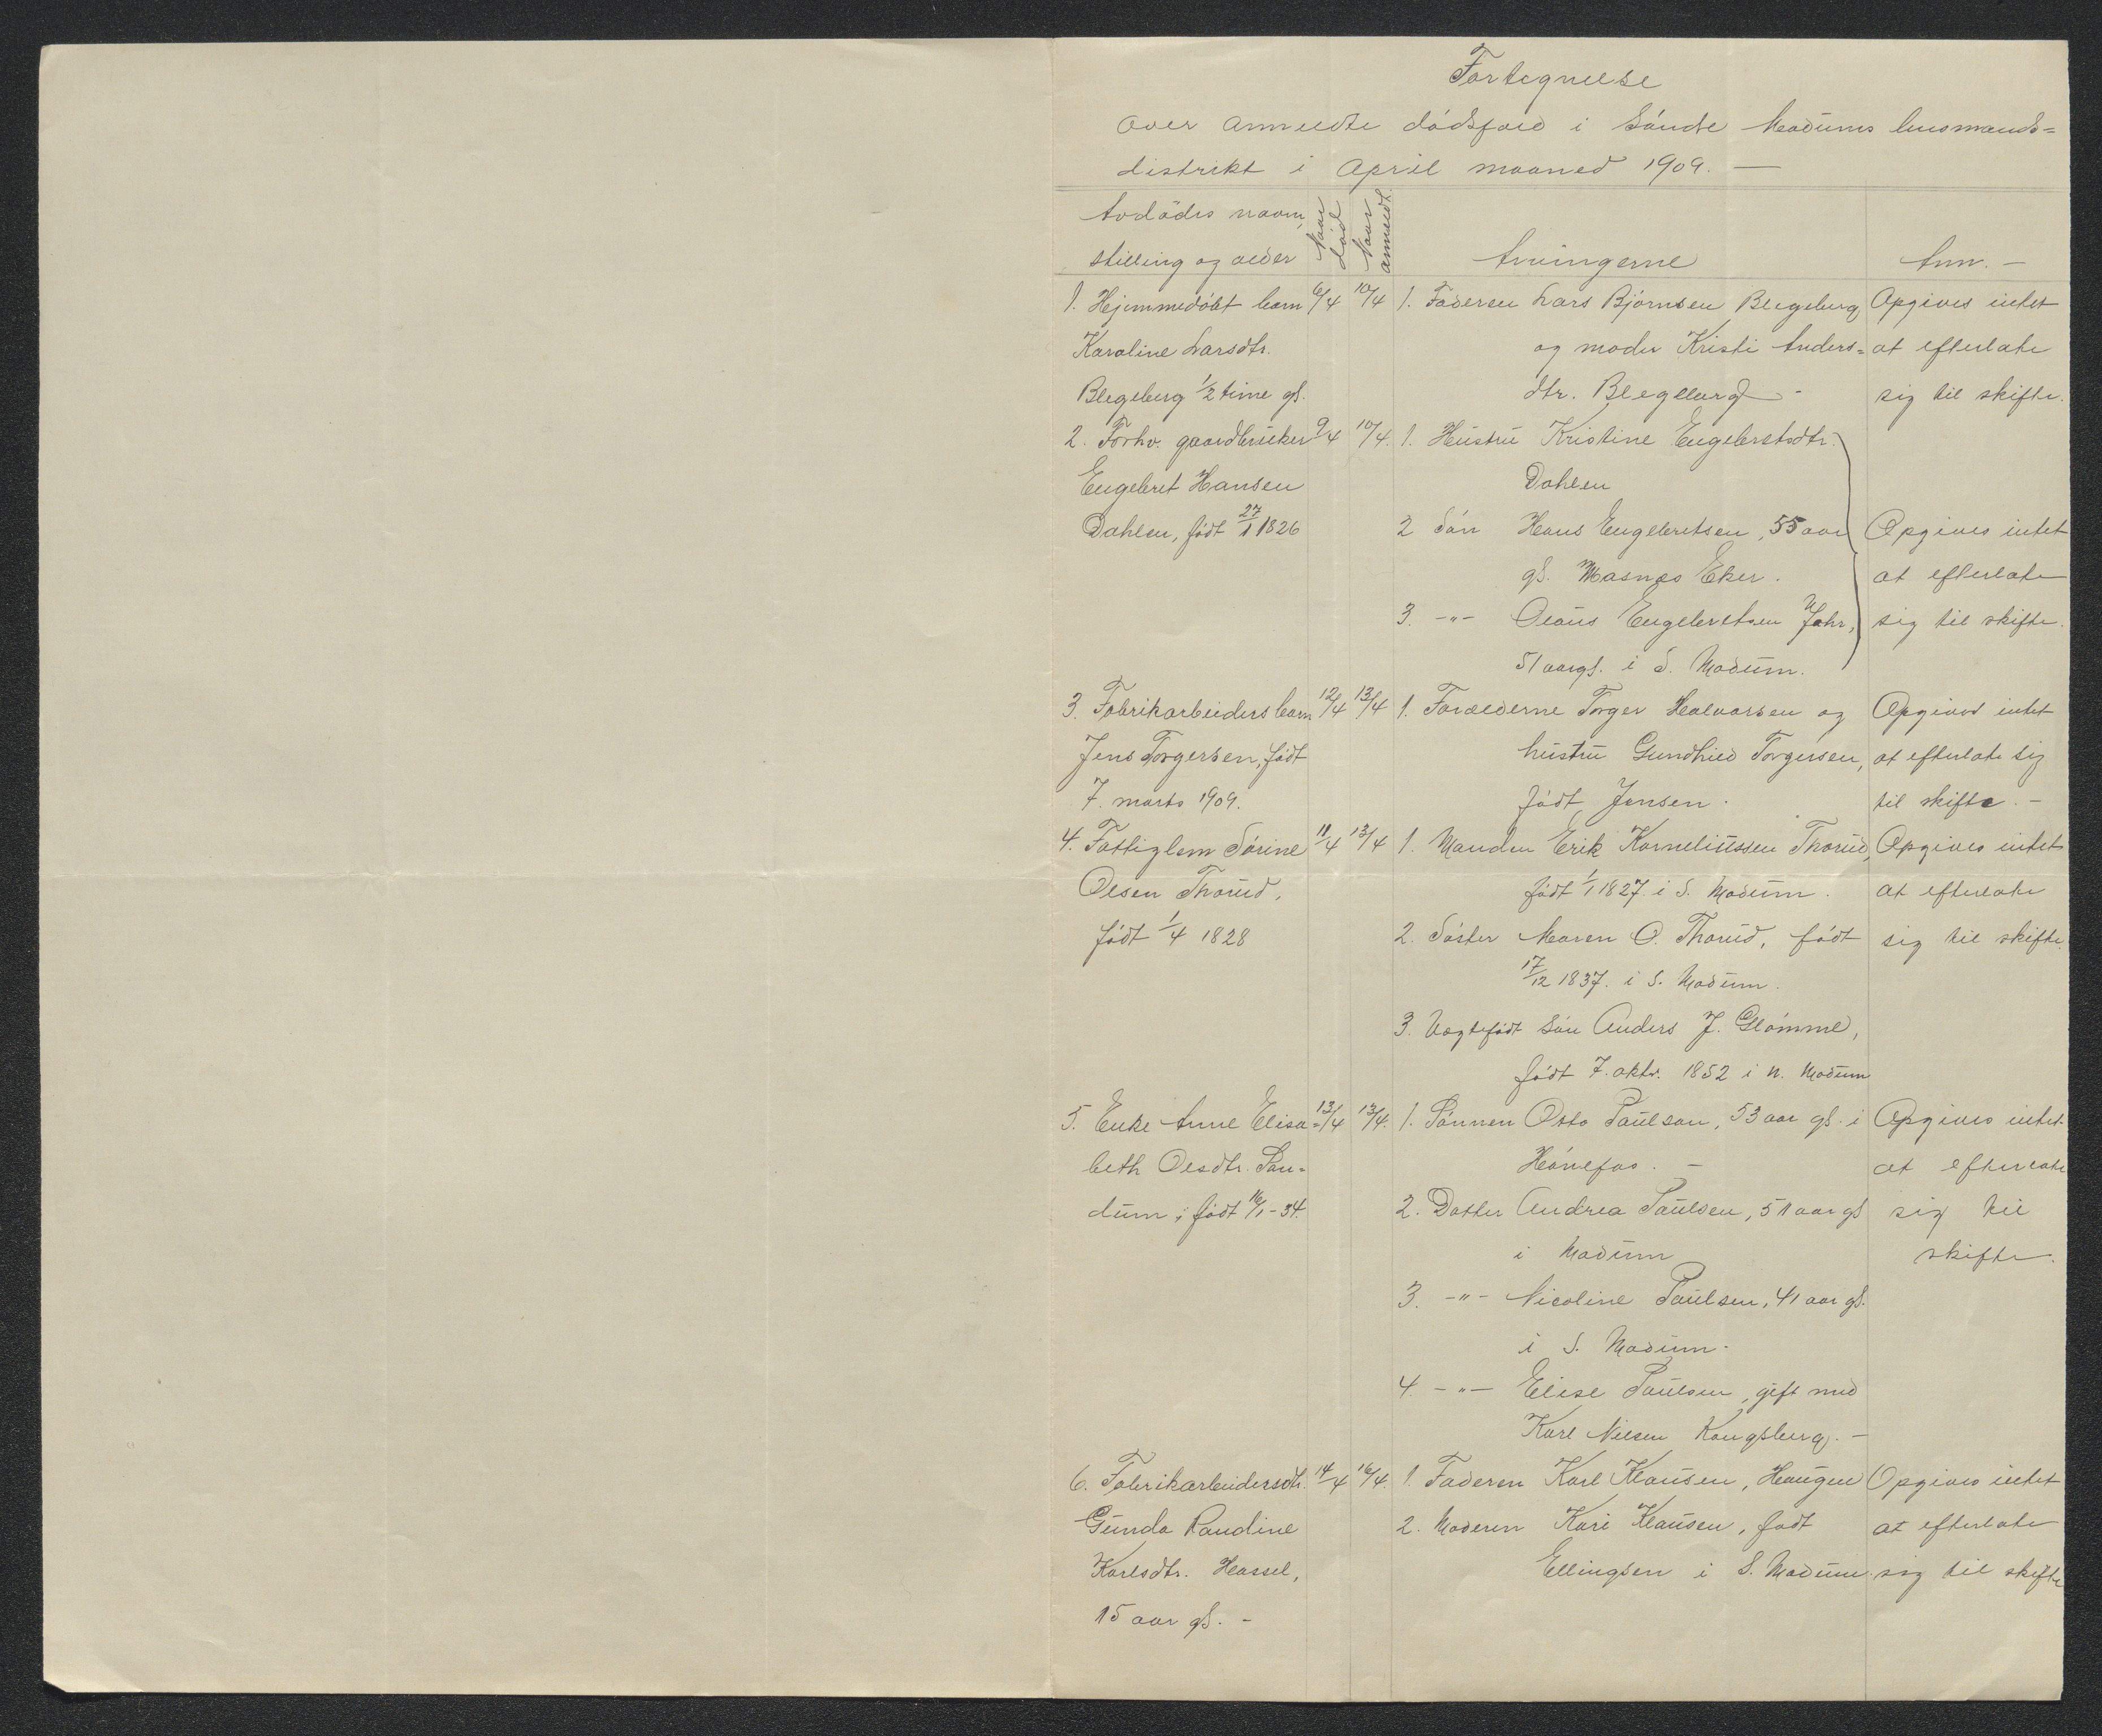 Fortegnelse
over anmeldte dödsfald i Söndre Modums lensmands=
distrikt i April maaned 1909. —
Avdödes navn,
stilling og alder
Naar
död
Naar
anmeldt.
Arvingerne
Anm. —
1. Hjemmedöbt barn 6/4 10/4 1. Faderen Lars Björnsen Blegeberg Opgives intet
Karoline Larsdtr. og moder Kristi Anders= at efterlate
Blegeberg 1/2 time gl. dtr. Blegeberg - sig til skifte.
2. Forhv. gaardbruker 9/4 10/4. 1. Hustru Kristine Engebretsdtr.
Engebret Hansen Dahlen
Dahlen, födt 27/1 1826 2 Sön Hans Engebretsen, 55 aar Opgives intet
gl. Masnæs Eker. at efterlate
3. -"- Olaus Engebretsen Jahr, sig til skifte.
51 aar gl. i S. Modum.
3. Fabrikarbeiders barn 12/4 13/4 1. Forælderne Torger Halvorsen og Opgives intet
Jens Torgersen, födt hustru Gundhild Torgersen, at efterlate sig
7. marts 1909. födt Jensen. til skifte. -
4. Fattiglem Sörine 11/4 13/4 1. Manden Erik Korneliussen Thorud, Opgives intet
Olsen Thorud, födt 1/1 1827 i S. Modum. at efterlate
födt 1/4 1828 2. Söster Maren O. Thorud, födt sig til skifte.
17/12 1837. i S. Modum.
3. Uægtefödt sön Anders J. Glömme,
födt 7. oktr. 1852 i N. Modum
5. Enke Anne Elisa= 13/4 13/4. 1. Sönnen Otto Paulsen, 53 aar gl. i Opgives intet
beth Olsdtr. San= Hönefos. - at efterlate
dum, födt 16/1-34. 2. Datter Andrea Paulsen, 51 aar gl sig til
i Modum skifte.
3. -"- Nicoline Paulsen, 41 aar gl.
i S. Modum.
4. -"- Elise Paulsen, gift med
Karl Nilsen Kongsberg. -
6. Fabrikarbeidersdtr. 14/4 16/4. 1. Faderen Karl Klausen, Haugen Opgives intet
Gunda Randine 2. Moderen Kari Klausen, födt at efterlate
Karlsdtr. Hassel, Ellingsen i S. Modum. sig til skifte
15 aar gl. -